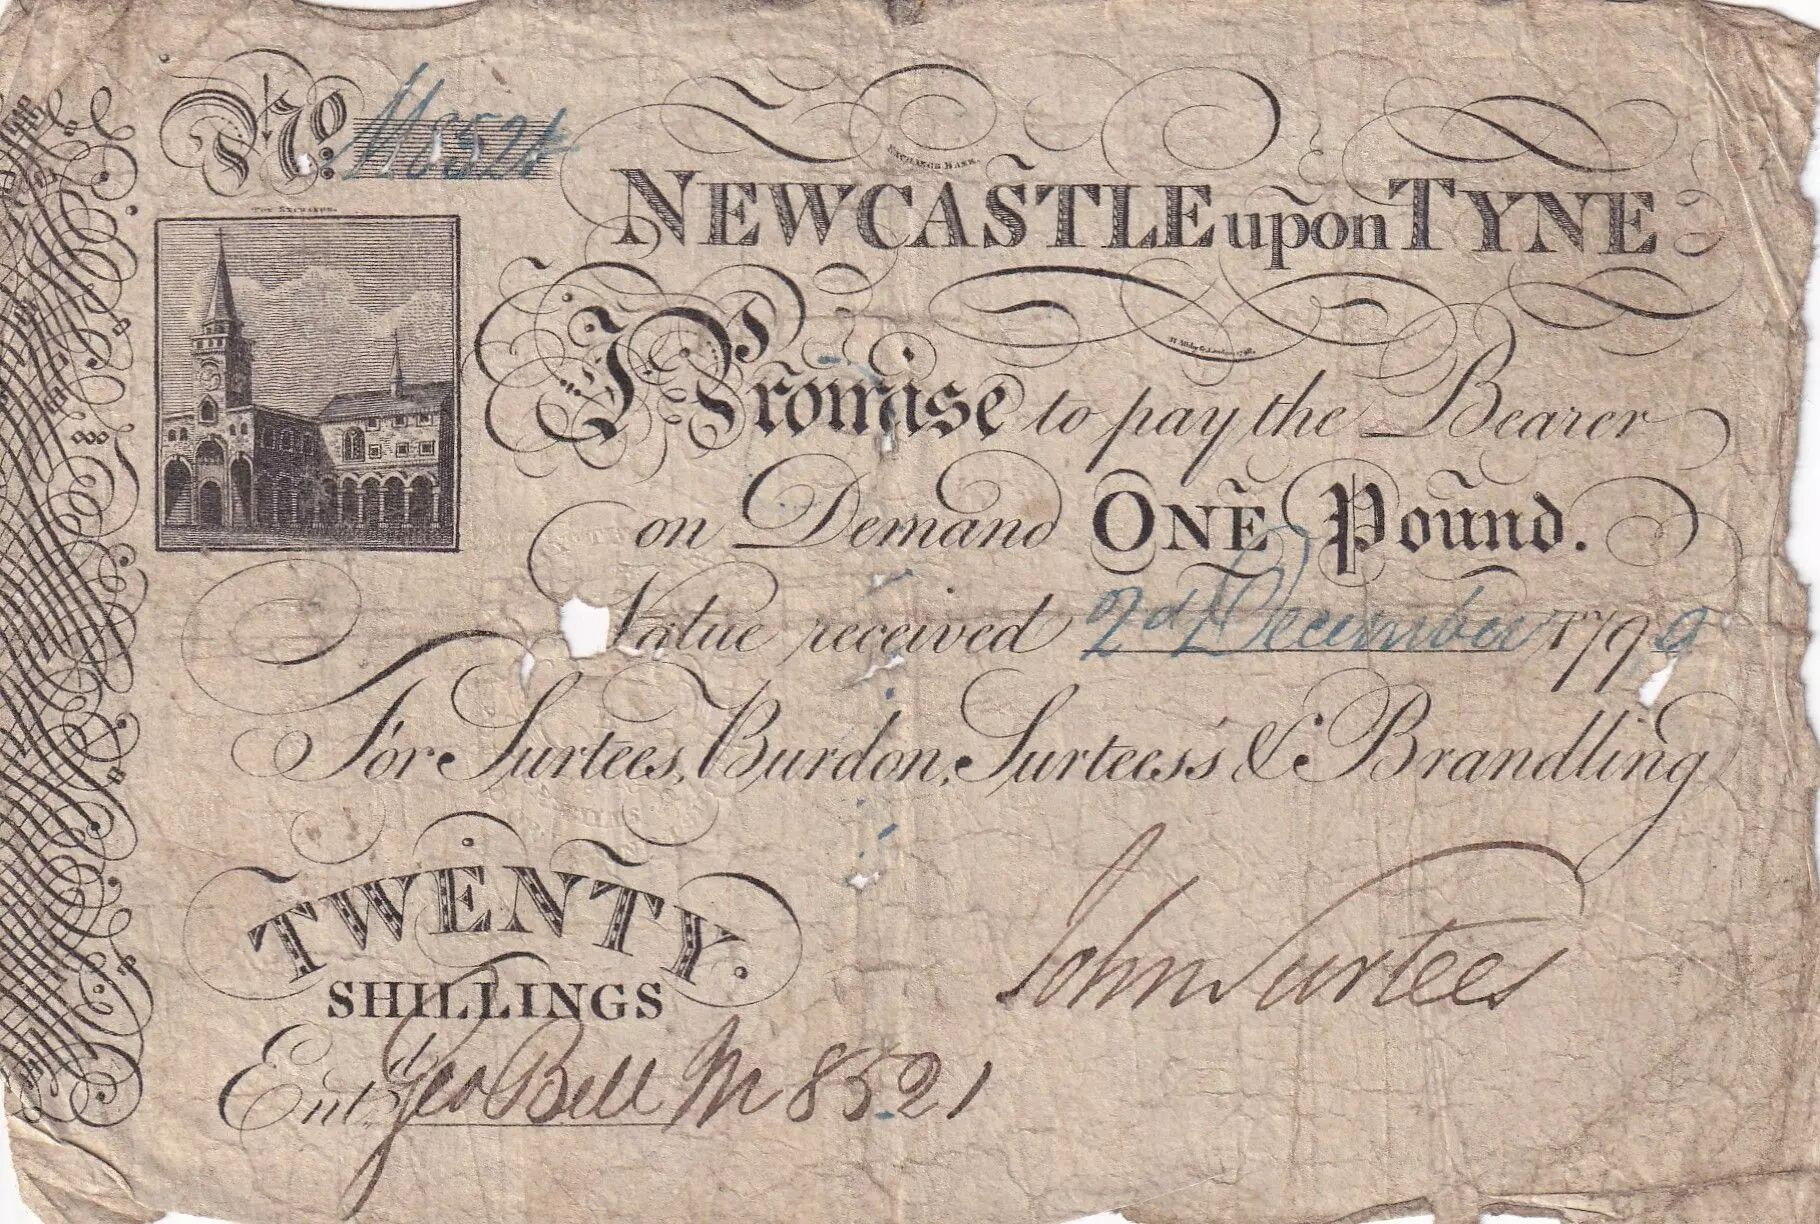 No. M8521
EXCHANGE BANK.
THE EXCHANGE.
NEWCASTLE upon TYNE
I Promise to pay the Bearer
on Demand ONE Pound.
Value received 2d December 1799
For Surtees, Burdon, Surtees's & Brandling
TWENTY.
SHILLINGS
John Surtees
Entd. Geo Bell M 8521